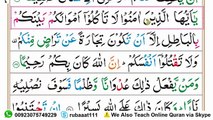 يٰٓاَيُّهَا الَّذِيْنَ اٰمَنُوْا لَا تَاْكُلُوْٓا اَمْوَالَكُمْ بَيْنَكُمْ
بِالْبَاطِلِ اِلَّآ اَنْ تَكُوْنَ تِجَارَةً عَنْ تَرَاضٍ مِّنْكُمْ
وَلَا تَقْتُلُوْٓا اَنْفُسَكُمْ اِنَّ اللّٰهَ كَانَ بِكُمْ رَحِيْمًا
وَمَنْ يَّفْعَلْ ذٰلِكَ عُدْوَانًا وَّظُلْمًا فَسَوْفَ نُصْلِيْهِ
00923075749229 rubaaat111 We Also Teach Online Quran via Skype